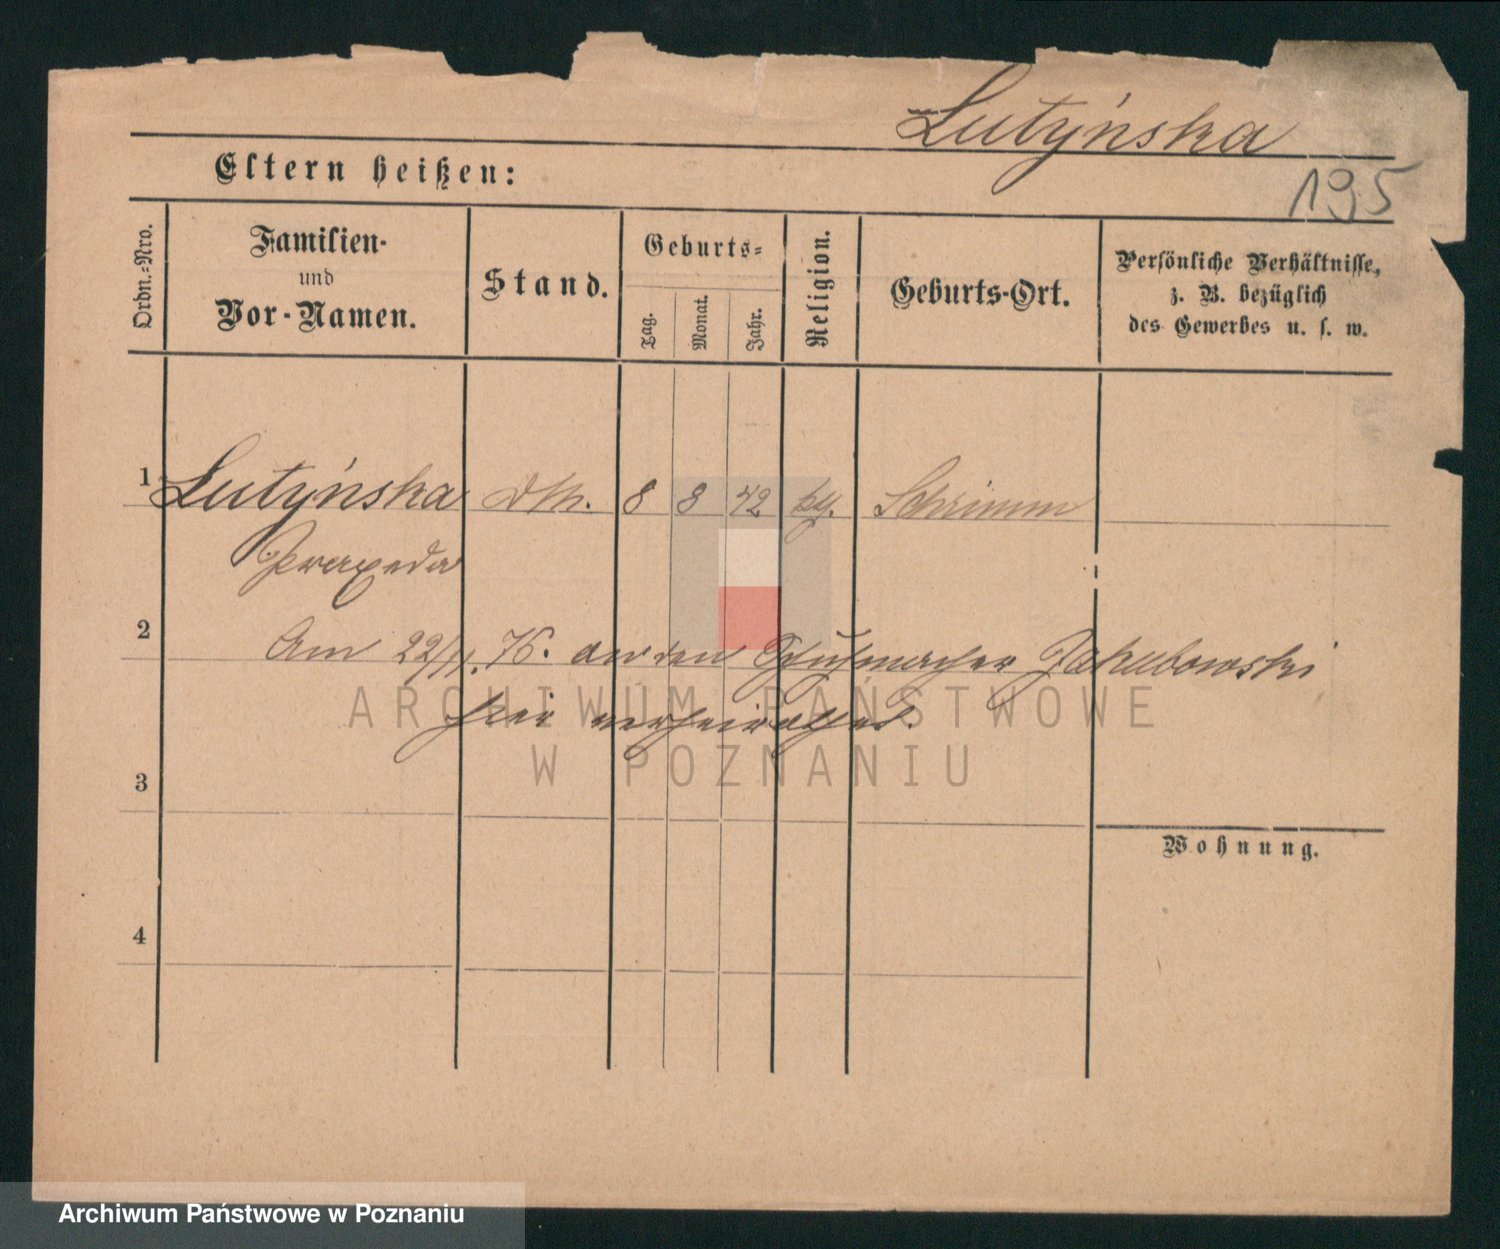 Lutyńska
Eltern heißen:
195
Ordn.-Nro.
Familien-
und
Vor-Namen.
Stand.
Geburts-
Tag.
Monat.
Jahr.
Religion.
Geburts-Ort.
Persönliche Verhältnisse,
z. B. bezüglich
des Gewerbes u. s. w.
1 Lutyńska 8 8 42 Schrimm
Praxeda
2
Am 22/11. 76. an den Schuhmacher Jakubowski
hier verheirathet.
ARCHIWUM PAŃSTWOWE
W POZNANIU
3
Wohnung.
4
Archiwum Państwowe w Poznaniu